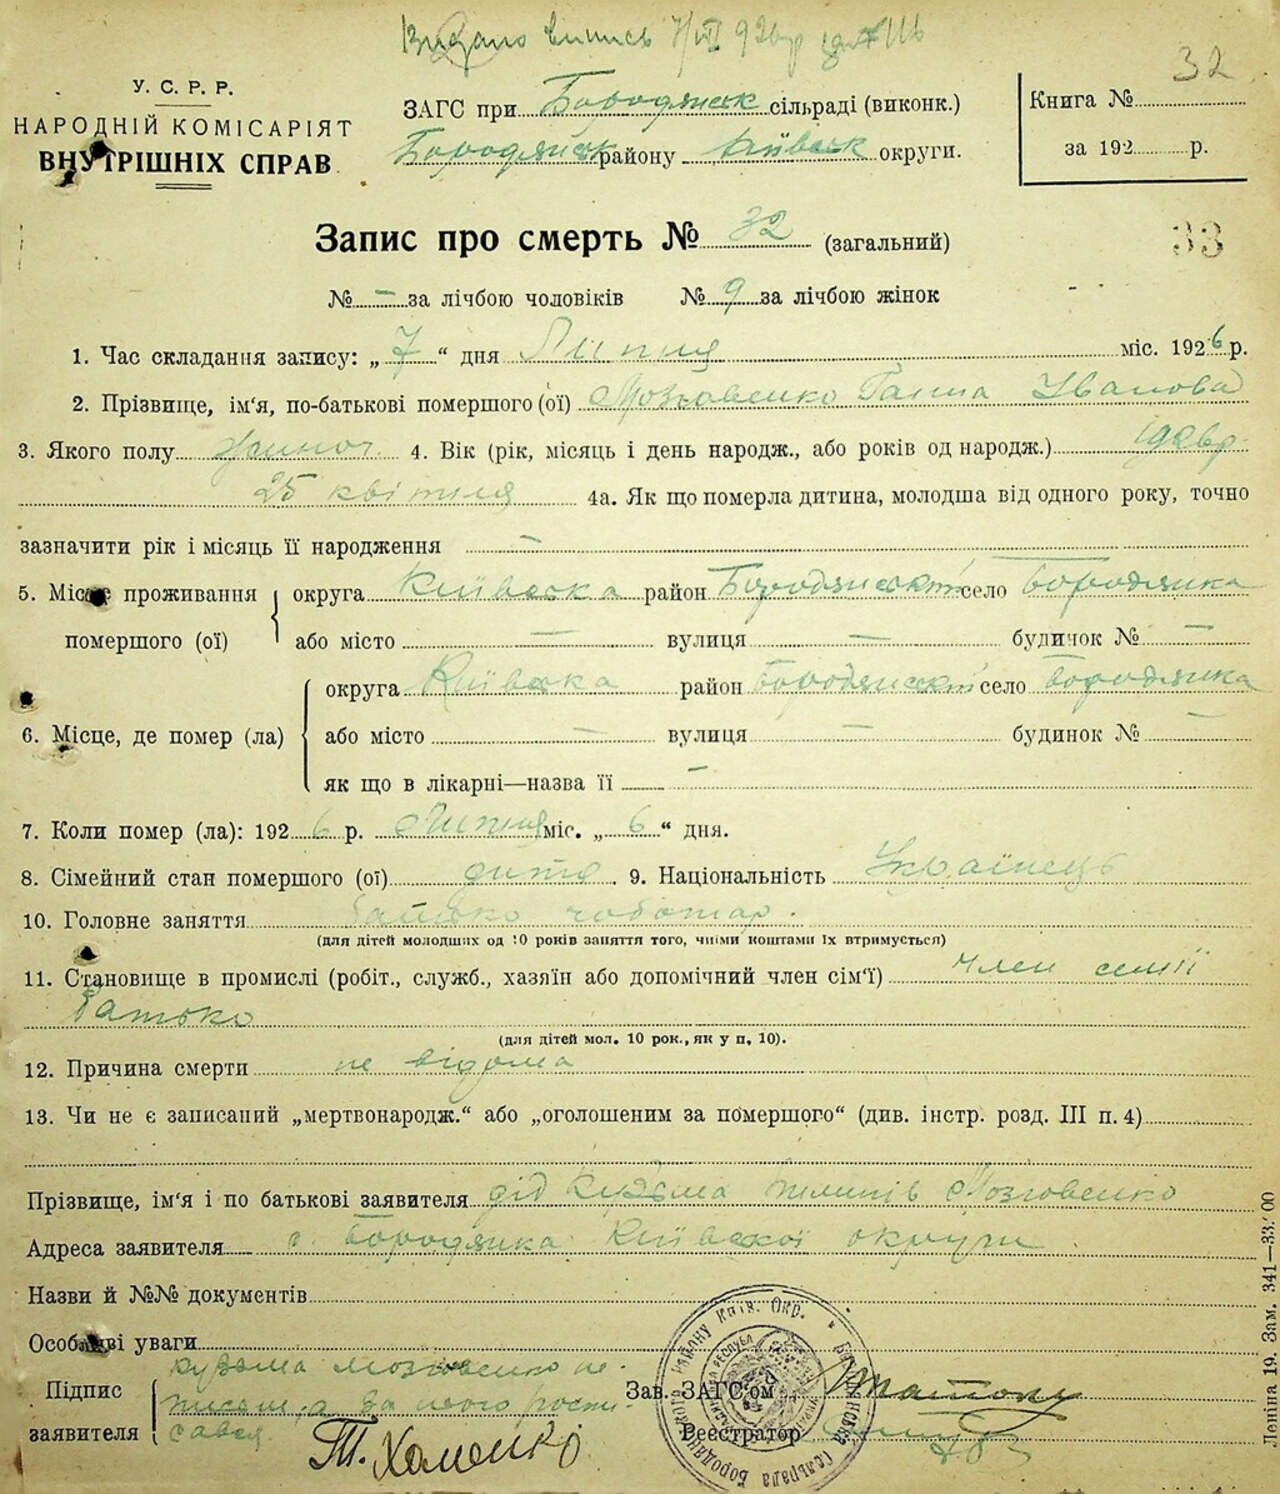 Видано випись 7/VII 926р
32
У. С. Р. Р.
НАРОДНІЙ КОМІСАРІЯТ
ВНУТРІШНІХ СПРАВ
ЗАГС при Бородянск сільраді (виконк.)
Бородянск району Київськ округи.
Книга №
за 192 р.
Запис про смерть № 32 (загальний)
33
№ — за лічбою чоловіків № 9 за лічбою жінок
1. Час складання запису: „ 7 “ дня Липня міс. 1926 р.
2. Прізвище, ім'я, по-батькові помершого (ої) Мозговенко Ганна Іванова
3. Якого полу жиноч. 4. Вік (рік, місяць і день народж., або років од народж.)
25 квітня 4а. Як що померла дитина, молодша від одного року, точно
зазначити рік і місяць її народження —
5. Місце проживання помершого (ої) округа Київська район Бородянський село Бородянка
або місто — вулиця — будинок № —
6. Місце, де помер (ла) округа Київська район Бородянський село Бородянка
або місто — вулиця — будинок № —
як що в лікарні—назва її —
7. Коли помер (ла): 1926 р. Липня міс. „ 6 “ дня.
8. Сімейний стан помершого (ої) дитя . 9. Національність Українець
10. Головне заняття батько чоботар.
(для дітей молодших од 10 років заняття того, чиїми коштами їх втримується)
11. Становище в промислі (робіт., служб., хазяїн або допомічний член сім'ї) член семії
батько
(для дітей мол. 10 рок., як у п. 10).
12. Причина смерти не відома
13. Чи не є записаний „мертвонародж.“ або „оголошеним за помершого“ (див. інстр. розд. III п. 4)
Прізвище, ім'я і по батькові заявителя дід Кузьма Пилипів Мозговенко
Адреса заявителя с. Бородянка Київської округи.
Назви й №№ документів
Особливі уваги
Підпис заявителя Кузьма Мозговенко не
писем, а за него роспи-
сався
Т. Хоменко
Зав. ЗАГС'ом
Реєстратор
району Київ. Окр.
Леніна 19. Зам. 341—33.000